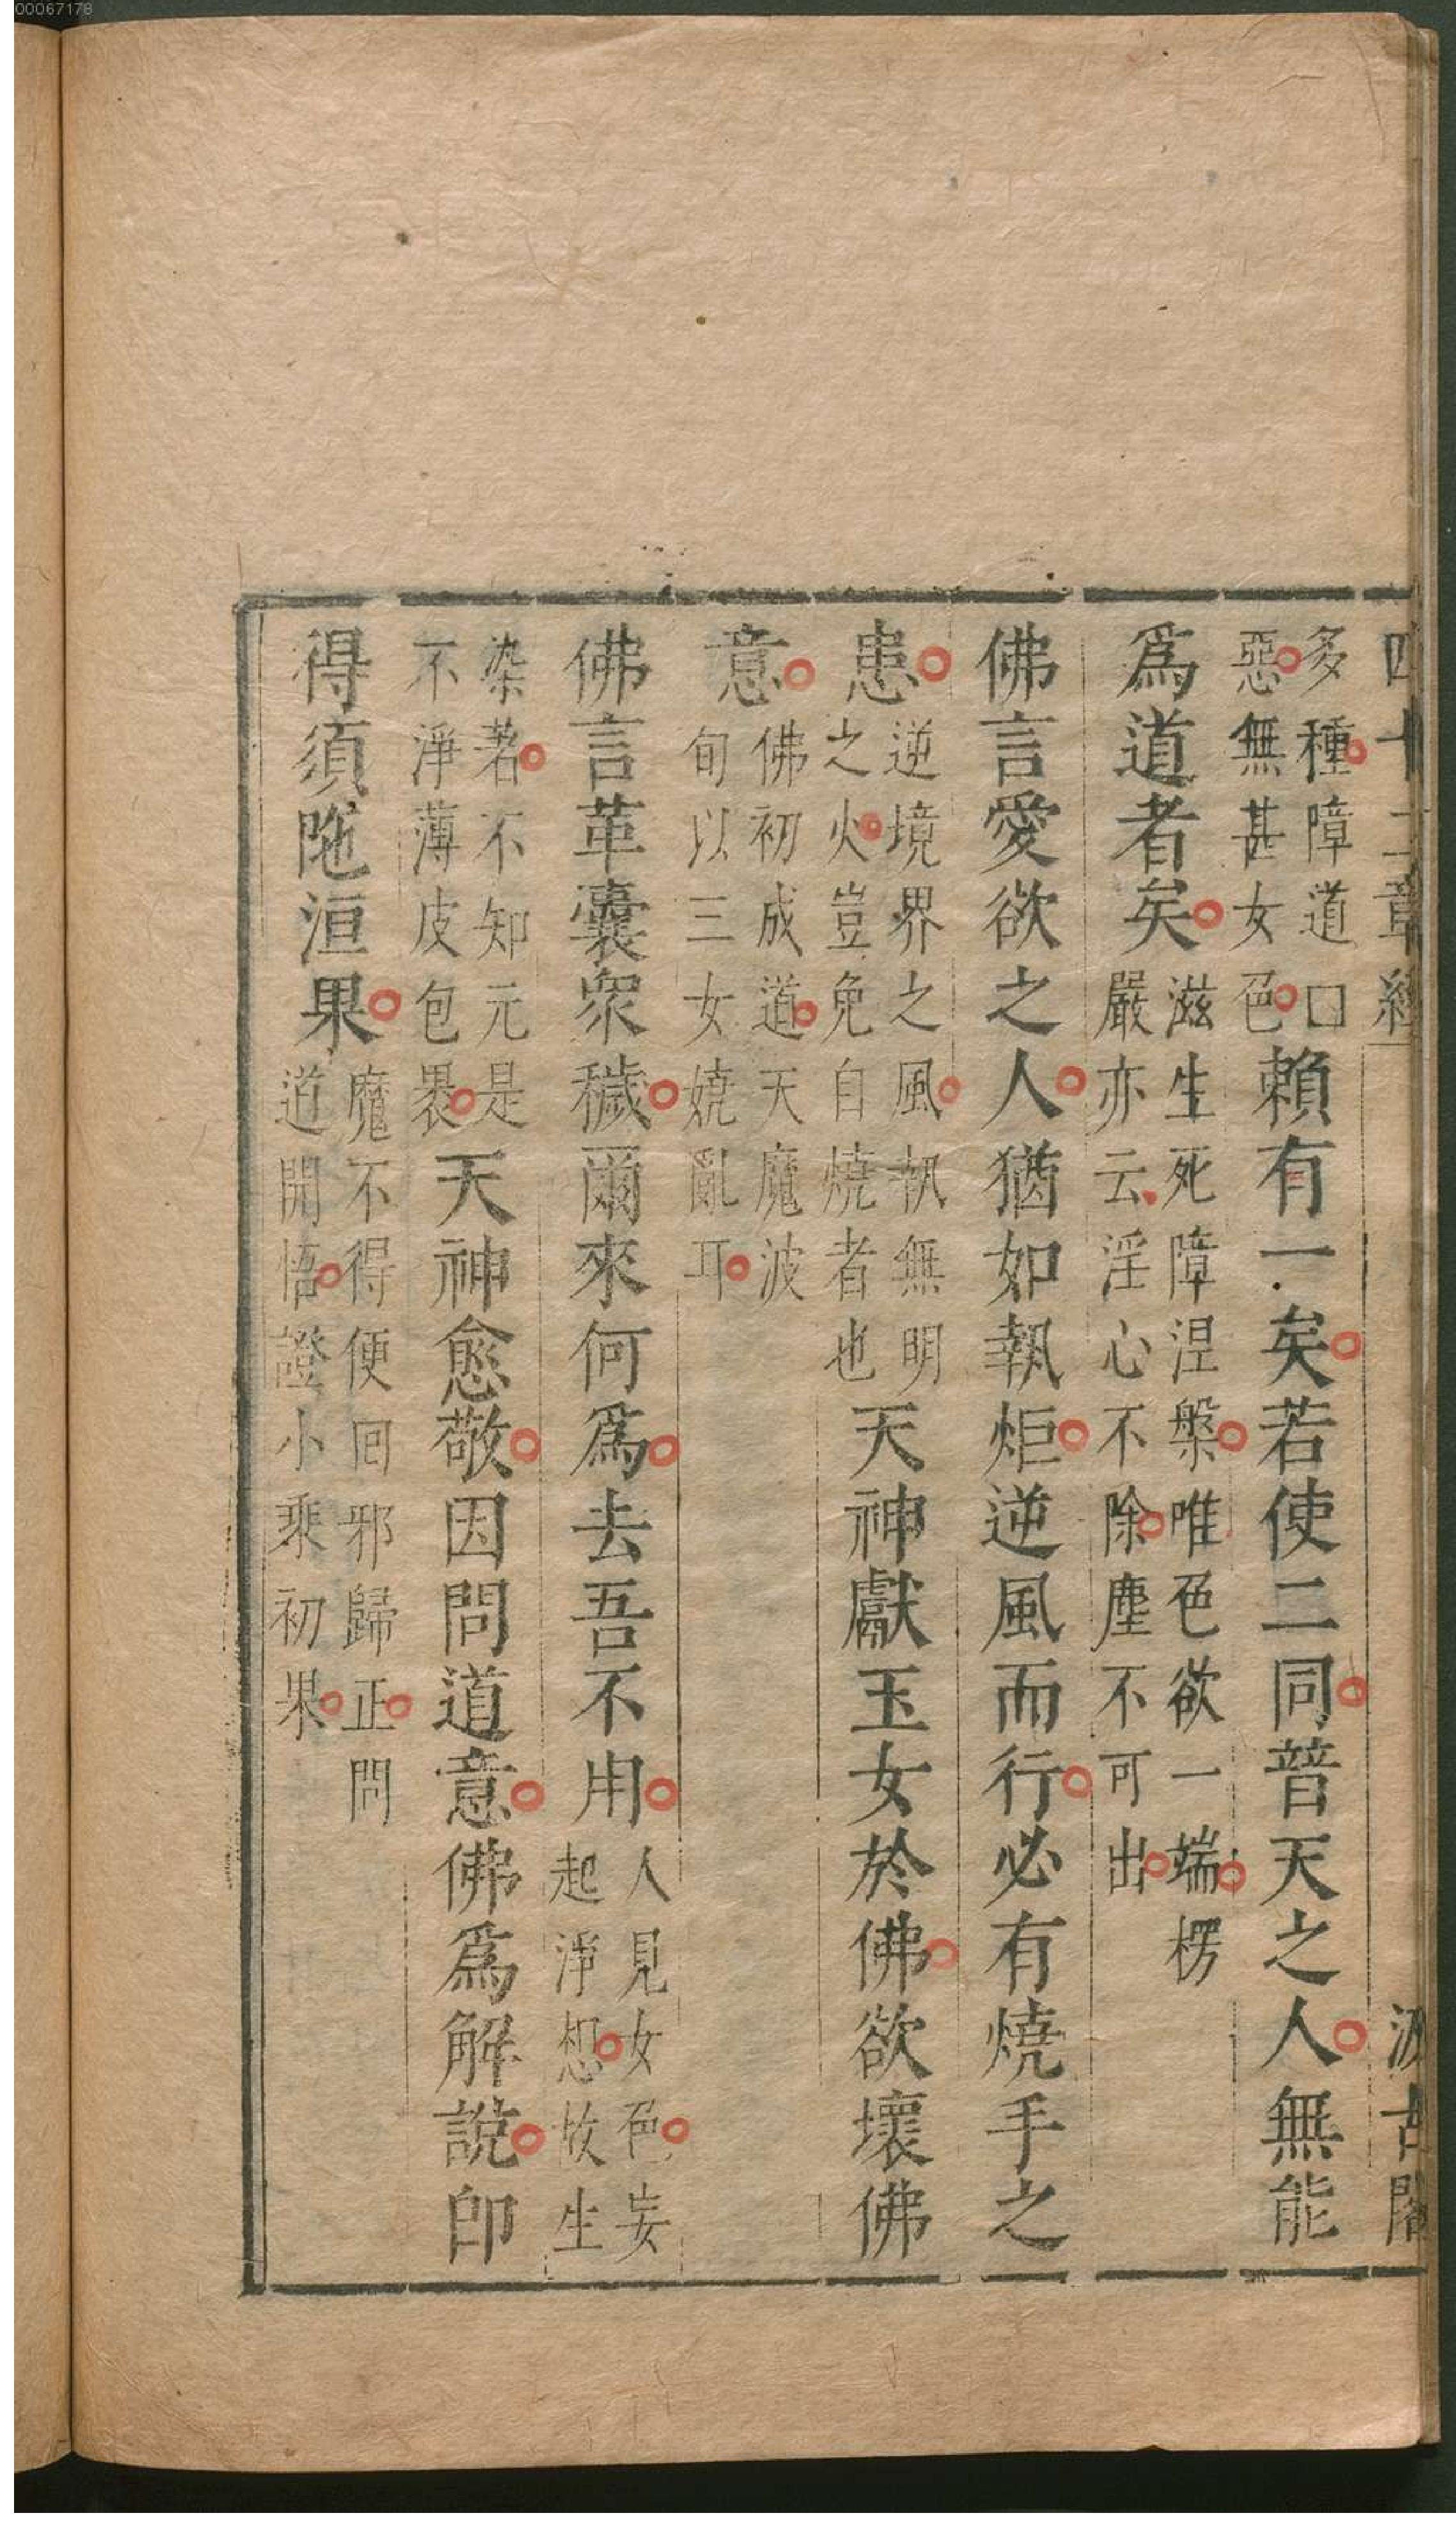 00067178
四十二章經 汲古閣
多種障道口
惡無甚女色
賴有一矣若使二同普天之人無能
爲道者矣
滋生死障涅槃唯色欲一端楞
嚴亦云淫心不除塵不可出
佛言愛欲之人猶如執炬逆風而行必有燒手之
患
逆境界之風執無明
之火豈免自燒者也
天神獻玉女於佛欲壞佛
意
佛初成道天魔波
旬以三女嬈亂耳
佛言革囊眾穢爾來何爲去吾不用
人見女色妄
起淨想故生
染著不知元是
不淨薄皮包褁
天神愈敬因問道意佛爲解說卽
得須陁洹果
魔不得便囘邪歸正問
道開悟證小乘初果